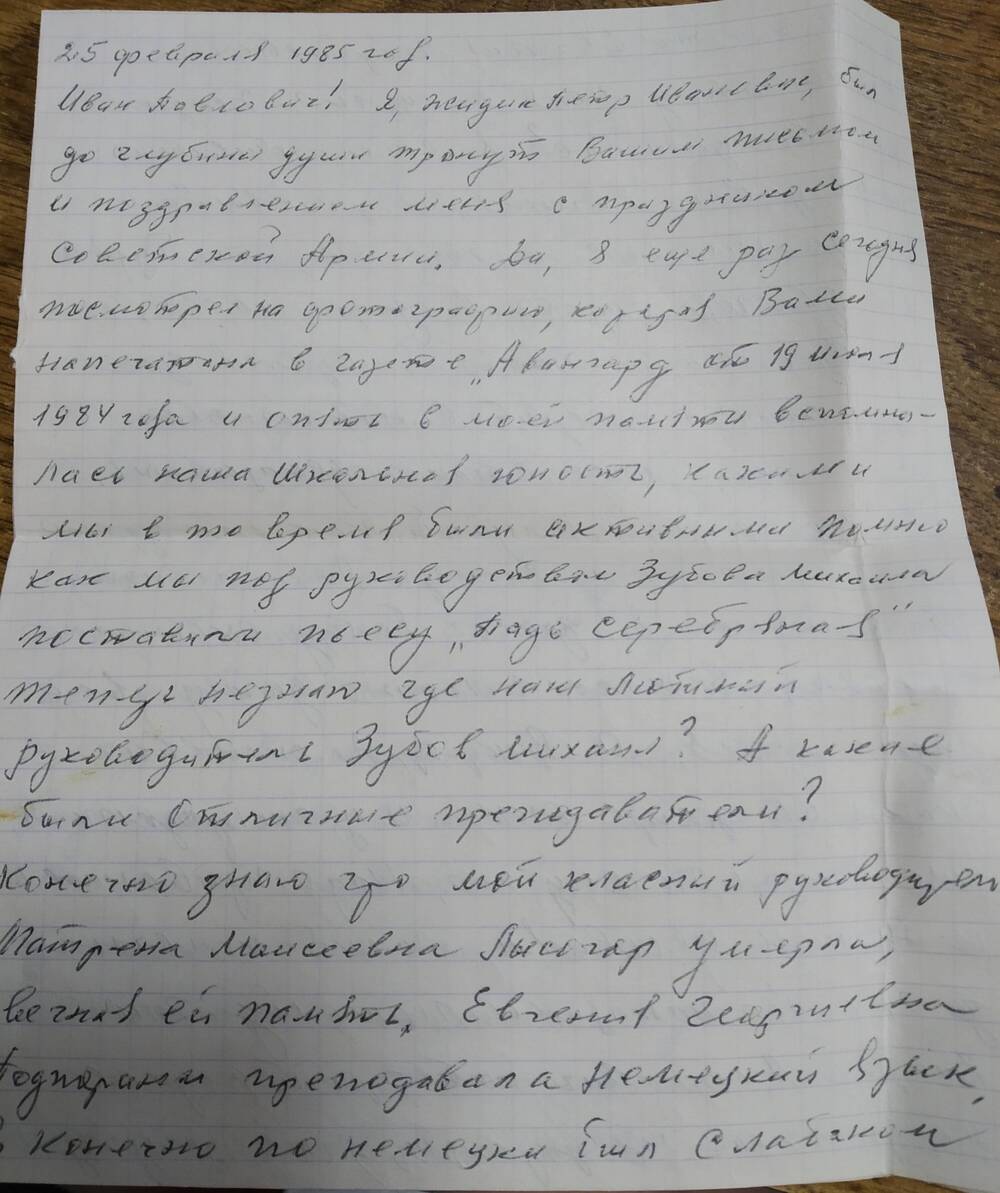 25 февраля 1985 год.
Иван Павлович! Я, Жидик Петр Иванович, был
до глубины души тронут Вашим письмом
и поздравлением меня с праздником
Советской Армии. Да, я еще раз сегодня
посмотрел на фотографию, которая Вами
напечатана в газете „Авангард от 19 июля
1984 года и опять в моей памяти вспомна-
лась наша школьная юность, какими
мы в то время были активными помню
как мы под руководством Зубова Михаила
поставили пьесу „Падь серебряная"
теперь незнаю где наш любимый
руководитель Зубов Михаил? А какие
были отличные преподаватели?
Конечно знаю что мой класный руководитель
Матрена Моисеевна Лысогор умерла,
вечная ей память. Евгения Георгиевна
преподавала немецкий язык,
Я конечно по немецки был слабаком